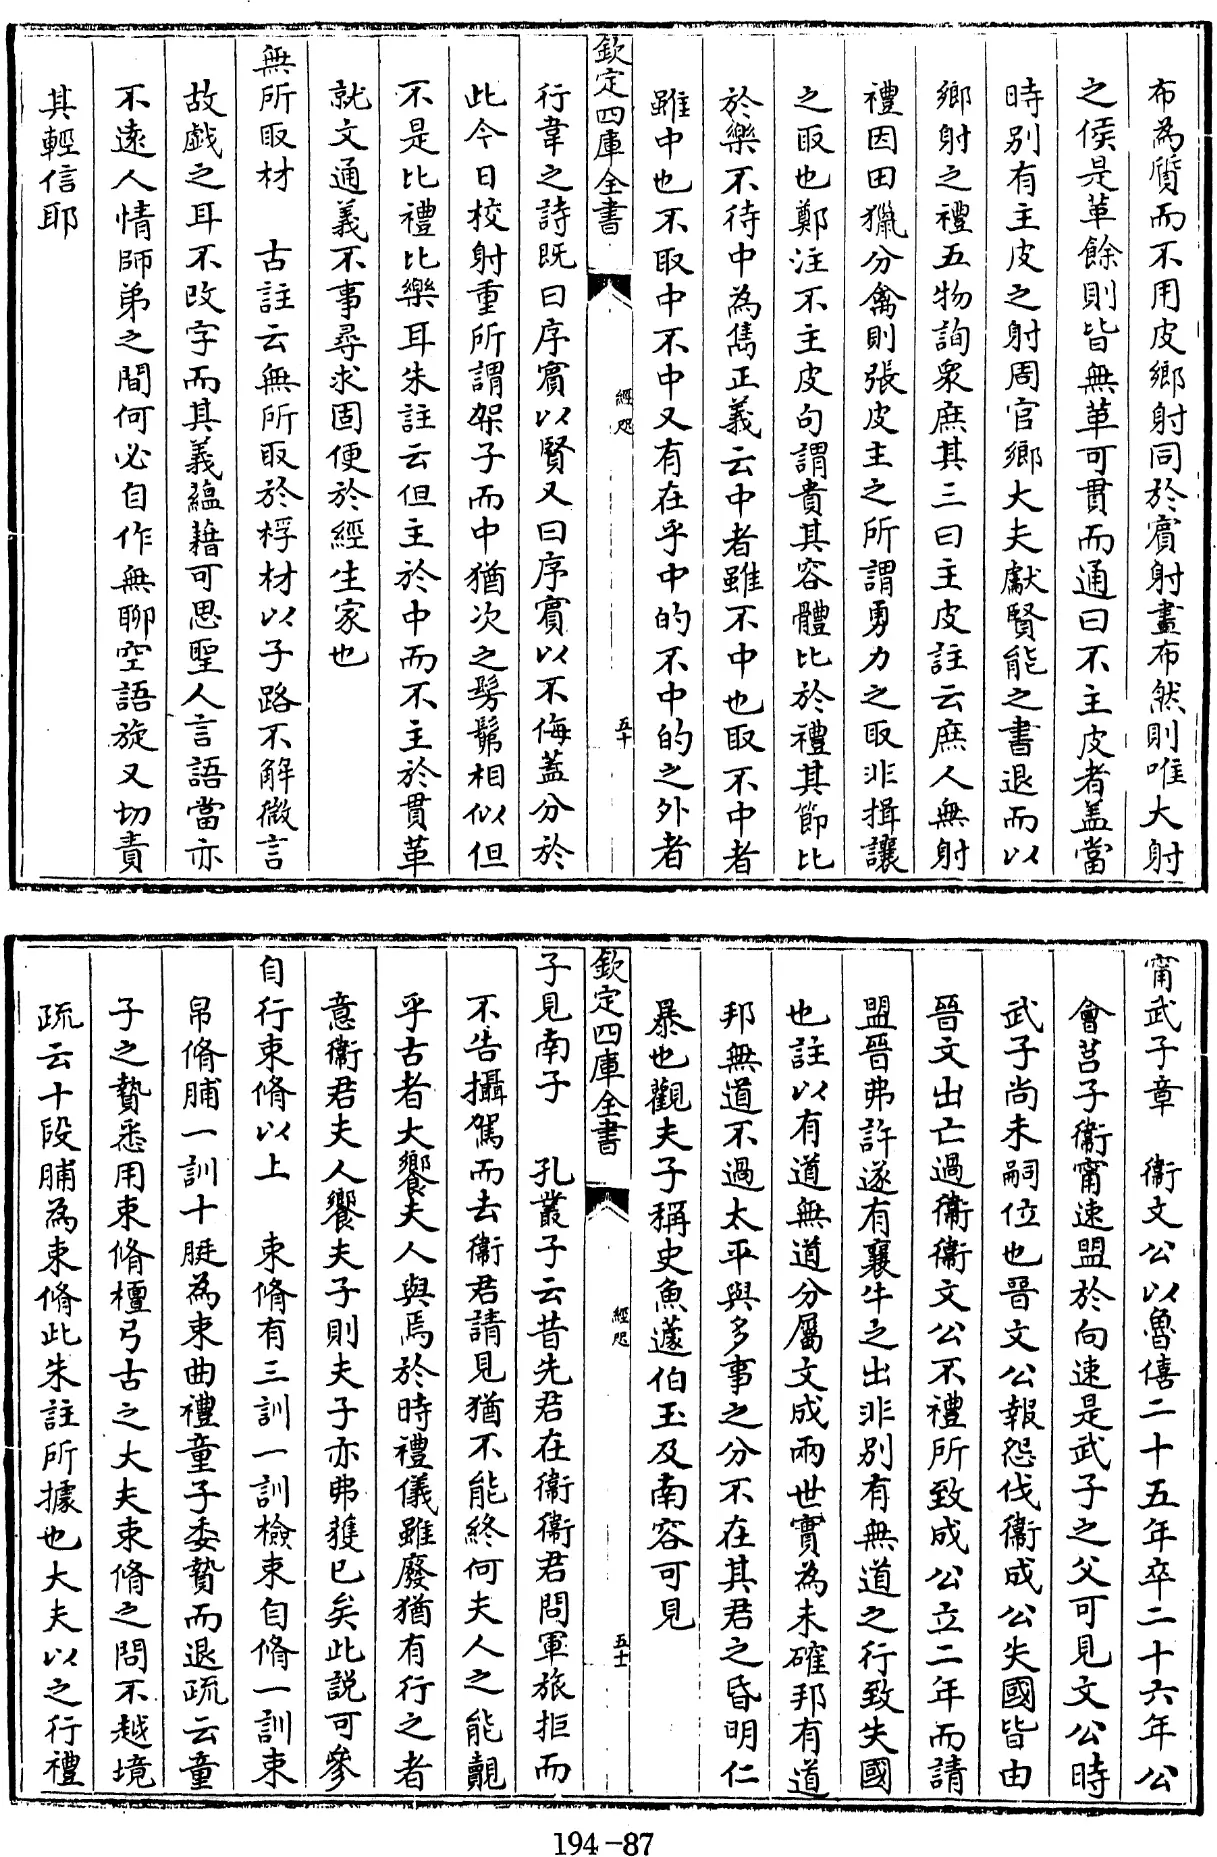 布為質而不用皮鄉射同於賓射畫布然則唯大射
之侯是革餘則皆無革可貫而通曰不主皮者葢當
時別有主皮之射周官鄉大夫獻賢能之書退而以
鄉射之禮五物詢衆庶其三曰主皮註云庶人無射
禮因田獵分禽則張皮主之所謂勇力之取非揖讓
之取也鄭注不主皮句謂貴其容體比於禮其節比
於樂不待中為雋正義云中者雖不中也取不中者
雖中也不取中不中又有在乎中的不中的之外者
欽定四庫全書
經咫
五十
行葦之詩既曰序賓以賢又曰序賓以不侮蓋分於
此今日校射重所謂架子而中猶次之髣髴相似但
不是比禮比樂耳朱註云但主於中而不主於貫革
就文通義不事尋求固便於經生家也
無所取材　古註云無所取於桴材以子路不解微言
故戲之耳不改字而其義蘊藉可思聖人言語當亦
不遠人情師弟之間何必自作無聊空語旋又切責
其輕信耶
甯武子章　衛文公以魯僖二十五年卒二十六年公
會莒子衛甯速盟於向速是武子之父可見文公時
武子尚未嗣位也晉文公報怨伐衛成公失國皆由
晉文出亡過衛衛文公不禮所致成公立二年而請
盟晉弗許遂有襄牛之出非別有無道之行致失國
也註以有道無道分屬文成兩世實為未確邦有道
邦無道不過太平與多事之分不在其君之昏明仁
暴也觀夫子稱史魚蘧伯玉及南容可見
欽定四庫全書
經咫
五十一
子見南子　孔叢子云昔先君在衛衛君問軍旅拒而
不告攝駕而去衛君請見猶不能終何夫人之能覿
乎古者大饗夫人與焉於時禮儀雖廢猶有行之者
意衛君夫人饗夫子則夫子亦弗獲已矣此說可參
自行束脩以上　束脩有三訓一訓檢束自脩一訓束
帛脩脯一訓十脡為束曲禮童子委贄而退疏云童
子之贄悉用束脩檀弓古之大夫束脩之問不越境
疏云十段脯為束脩此朱註所據也大夫以之行禮
194-87